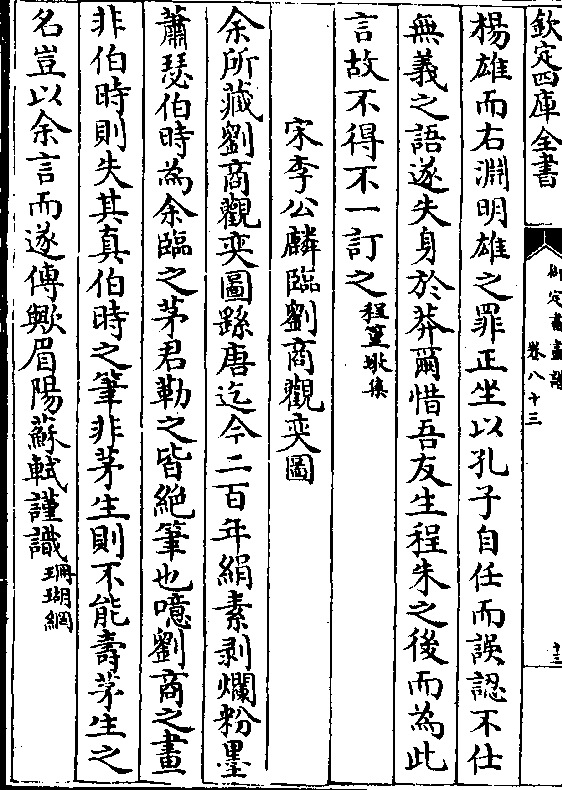 欽定四庫全書
御定書畫譜
卷八十三
十三
楊雄而右淵明雄之罪正坐以孔子自任而誤認不仕
無義之語遂失身於莽爾惜吾友生程朱之後而為此
言故不得不一訂之程篁墩集
宋李公麟臨劉商觀奕圖
余所藏劉商觀奕圖繇唐迄今二百年絹素剥爛粉墨
蕭瑟伯時為余臨之茅君勒之皆絶筆也噫劉商之畫
非伯時則失其真伯時之筆非茅生則不能壽茅生之
名豈以余言而遂傳歟眉陽蘇軾謹識珊瑚網